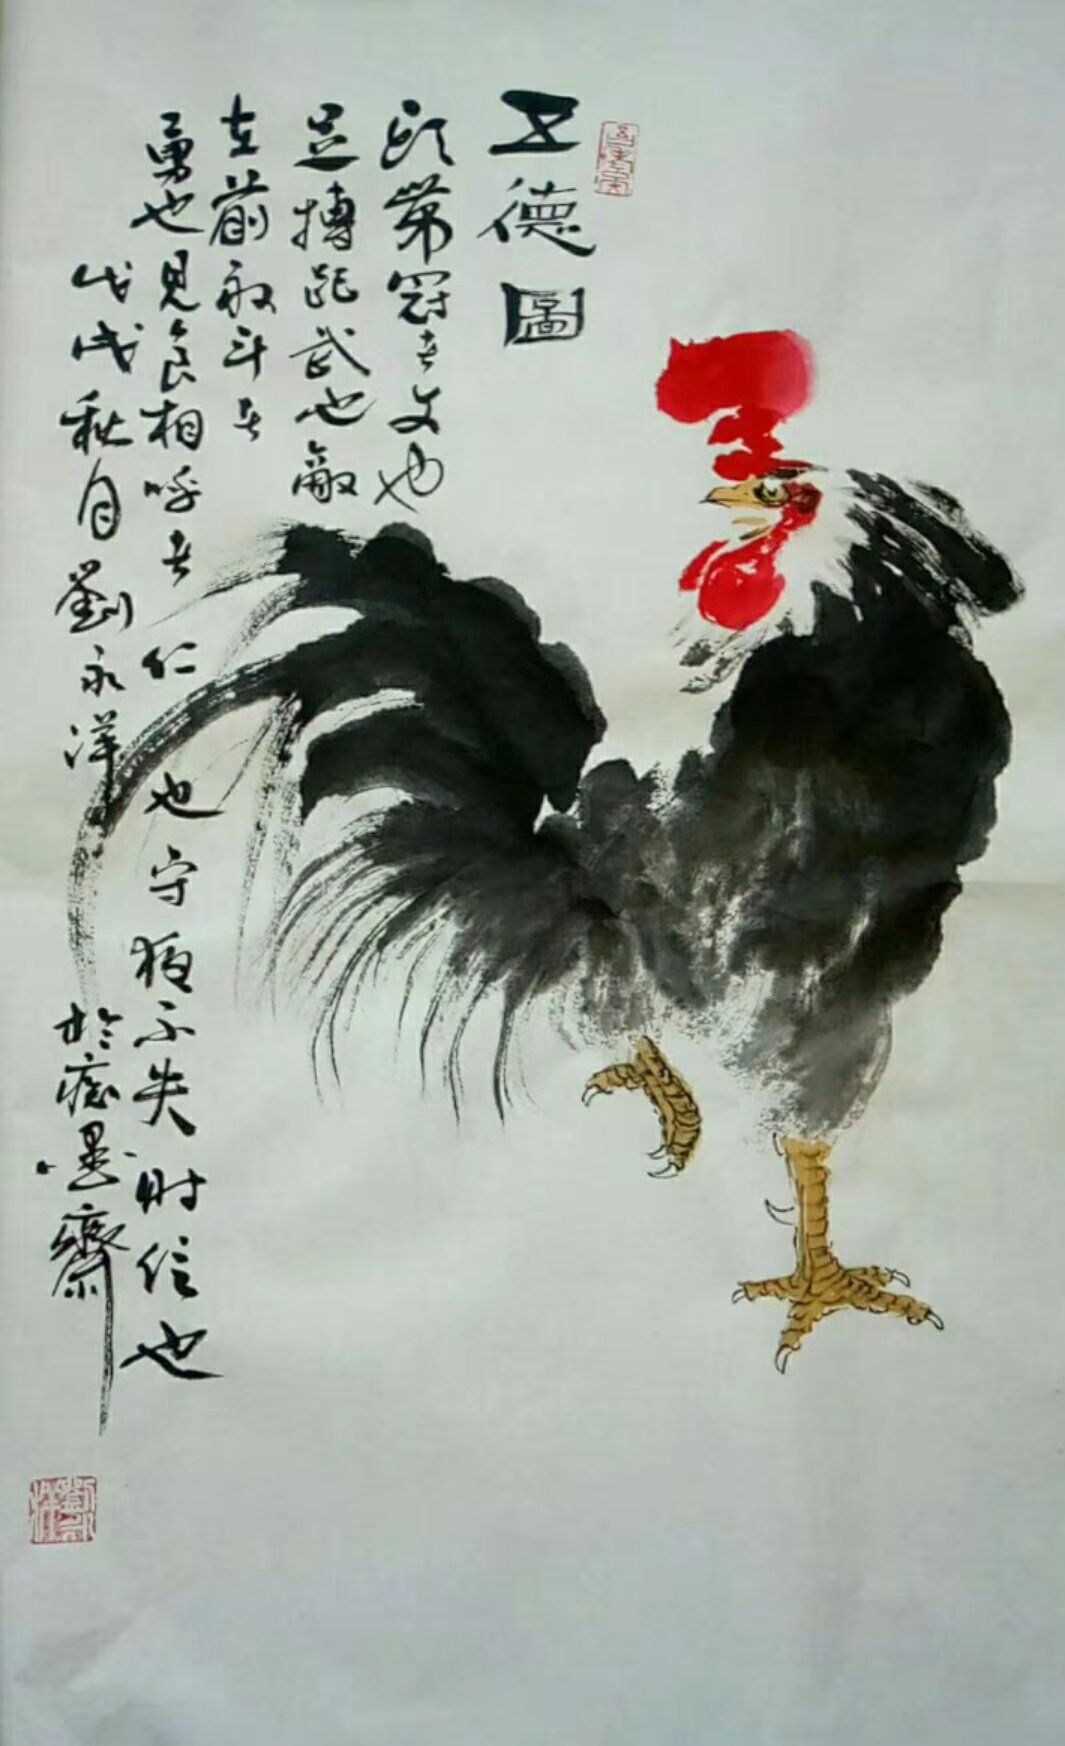 五德圖
頭带冠者文也
足搏距武也敵
在前敢斗者
勇也見食相呼者仁也守夜不失时信也
戊戌秋月劉永洋於痴墨齋